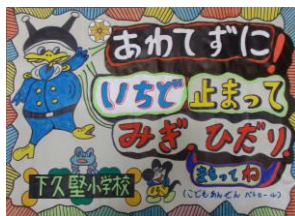 あわてずに!
いちど止まって
みぎ、ひだり!
まもってね
下久堅小学校
(こどもあんぜんパトロール)